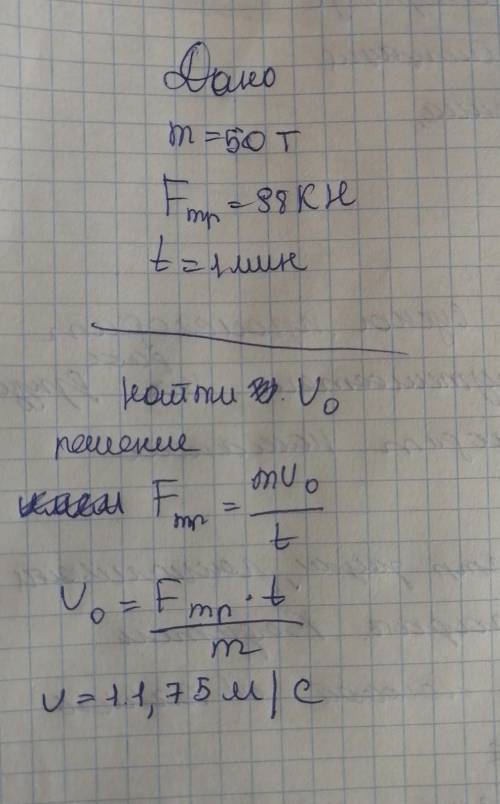 Дано
m = 50 т
Fтр = 98 кН
t = 1 мин
найти v₀
решение
Fтр = mv₀ / t
v₀ = Fтр · t / m
v = 11,75 м/с